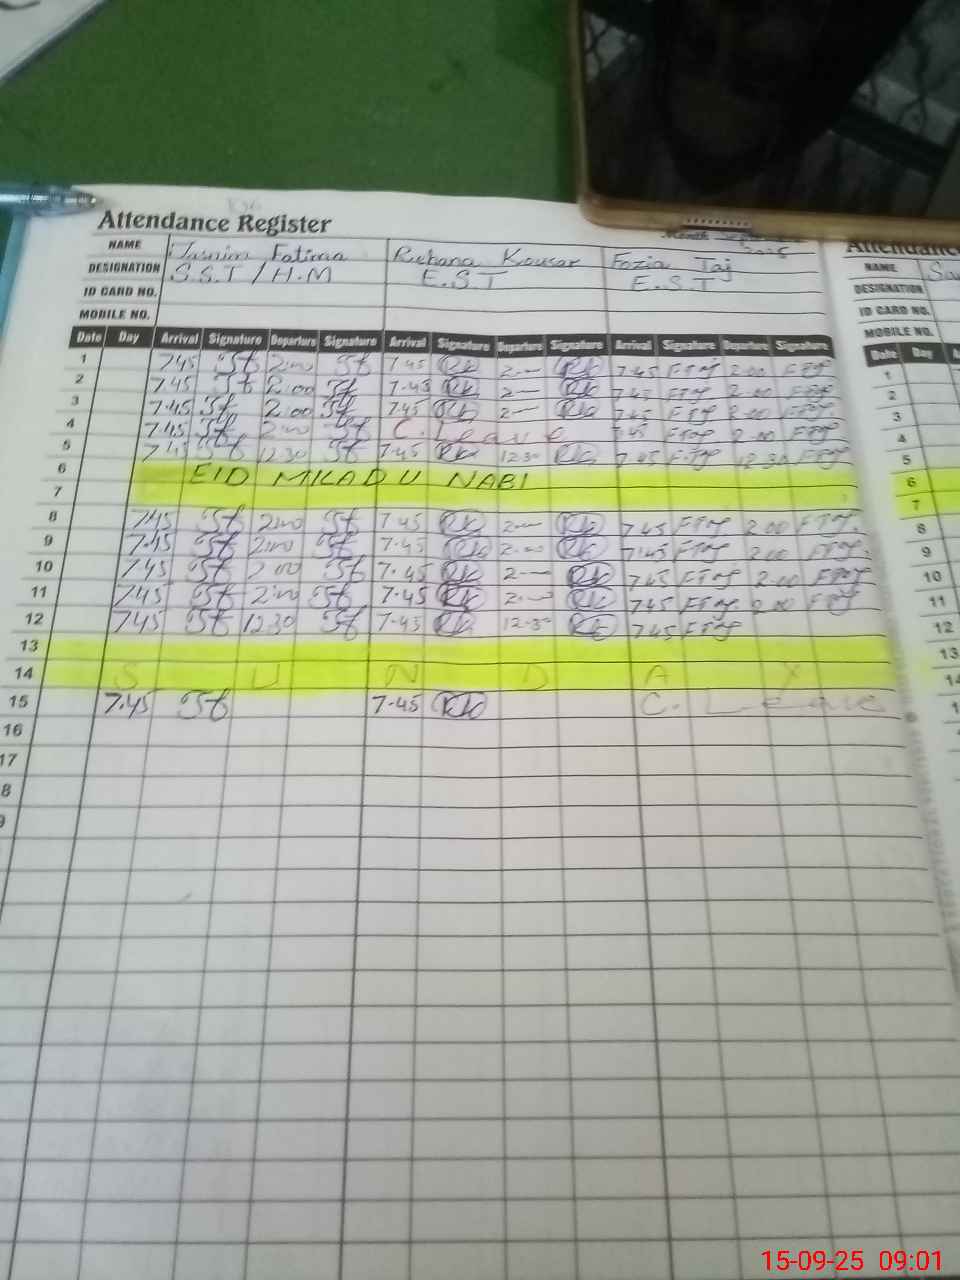 Attendance Register
Month
NAME Tasnim Fatima Rehana Kousar Fozia Taj
DESIGNATION S.S.T / H.M E.S.T E.S.T
ID CARD NO.
MOBILE NO.
Date Day Arrival Signature Departure Signature Arrival Signature Departure Signature Arrival Signature Departure Signature
1 7.45 St 2.00 St 7.45 RK 2— RK 7.45 FTaj 2.00 FTaj
2 7.45 St 2.00 St 7.45 RK 2— RK 7.45 FTaj 2.00 FTaj
3 7.45 St 2.00 St 7.45 RK 2— RK 7.45 FTaj 2.00 FTaj
4 7.45 St 2.00 St C. Leave 7.45 FTaj 2.00 FTaj
5 7.45 St 12.30 St 7.45 RK 12.30 RK 7.45 FTaj 12.30 FTaj
6 EID MILAD U NABI
7
8 7.45 St 2.00 St 7.45 RK 2— RK 7.45 FTaj 2.00 FTaj
9 7.45 St 2.00 St 7.45 RK 2.00 RK 7.45 FTaj 2.00 FTaj
10 7.45 St 2.00 St 7.45 RK 2— RK 7.45 FTaj 2.00 FTaj
11 7.45 St 2.00 St 7.45 RK 2.00 RK 7.45 FTaj 2.00 FTaj
12 7.45 St 12.30 St 7.45 RK 12.30 RK 7.45 FTaj
13
14 S U N D A Y
15 7.45 St 7.45 RK C. Leave
16
17
8
9
Attendance
NAME
DESIGNATION
ID CARD NO.
MOBILE NO.
Date Day
1
2
3
4
5
6
7
8
9
10
11
12
13
14
15-09-25 09:01